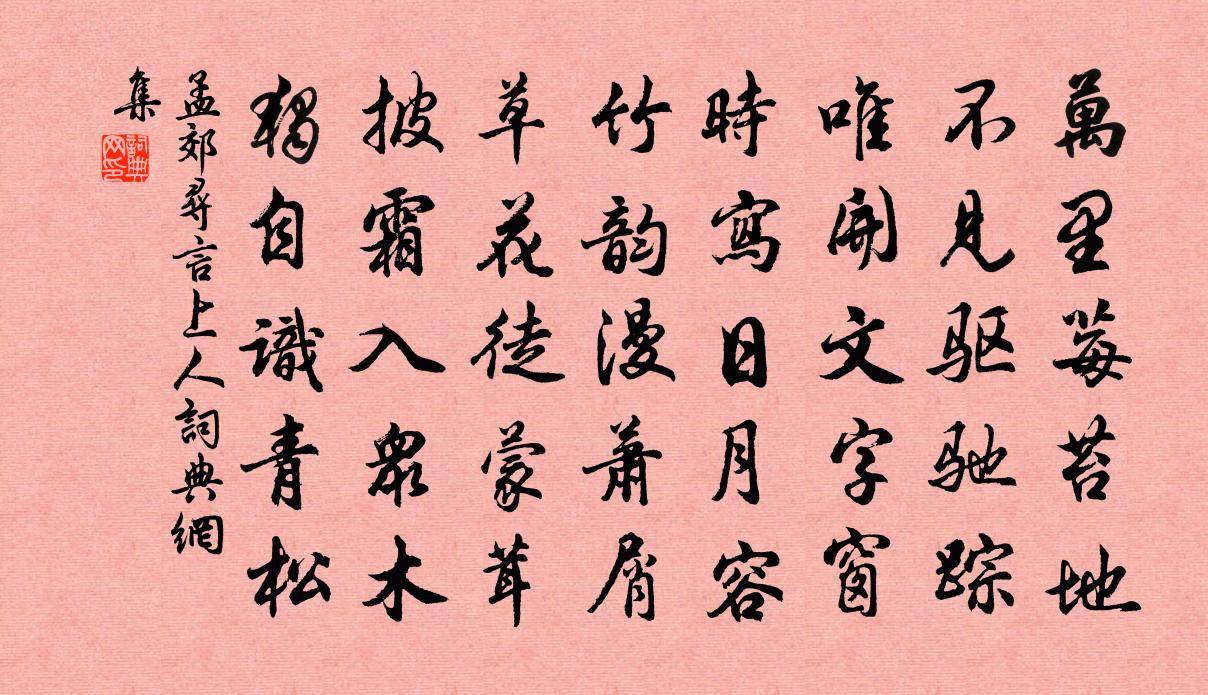 萬里莓苔地
不见驱驰踪
唯開文字窗
時寫日月容
竹韵漫萧屑
草花徒蒙茸
披霜入眾木
獨自識青松
孟郊尋言上人詞典網
集
詞典
网印